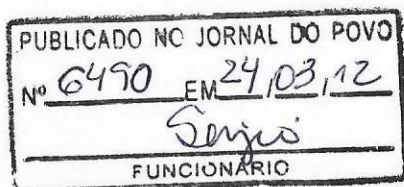 PUBLICADO NO JORNAL DO POVO
Nº 6490 EM 24,03,12
Sergio
FUNCIONARIO